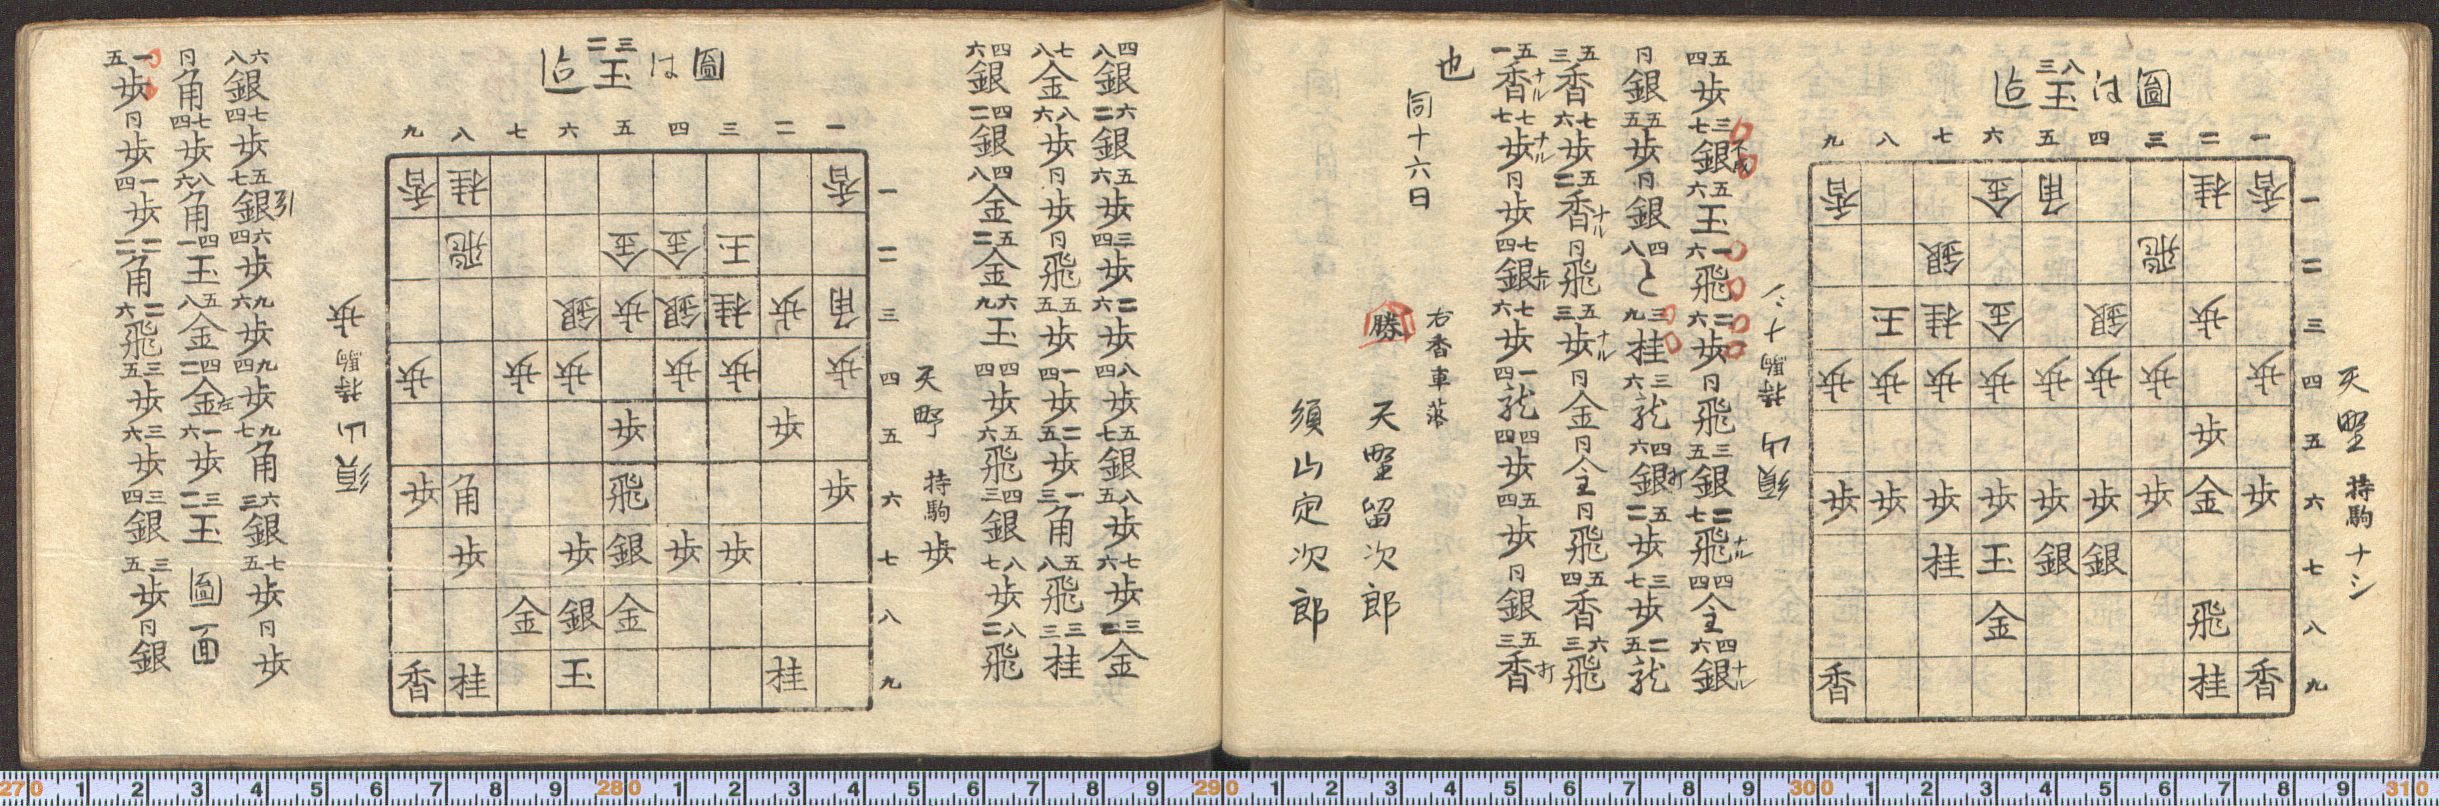 圖は八三玉迄
一二三四五六七八九
天野 持駒ナシ
香桂角金香 一
飛銀 二
歩銀金桂玉 三
歩歩歩歩歩歩歩歩 四
歩 五
歩金歩歩歩歩歩歩歩 六
銀銀玉桂 七
飛金 八
香桂香 九
須山 持駒ナシ
五四歩 三七銀不成 五六玉 一六飛 二六歩 同飛 三五銀 二七飛ナル 四四全 四六銀ナル
同銀 五五歩 同銀 四八と 三九桂 三六龍 四六銀打 五二歩 三七歩 二五龍
五三香 七六歩 五二香ナル 同飛 五三歩ナル 同金 同全 同飛 五四香 六三飛
五一香ナル 七七歩ナル 同歩 七四銀 七六歩 一四龍 四四歩 五四歩 同銀 五三香打
也
同十六日
右香車落
勝 天野留次郎
須山定次郎
四八銀 六二銀 五六歩 三四歩 二六歩 八四歩 五七銀 八五歩 七六歩 三二金
七八金 八六歩 同歩 同飛 五五歩 一四歩 二五歩 一三角 五八飛 三三桂
四六銀 四二銀 四八金 五二金 六九玉 四四歩 五六飛 四三銀 八七歩 八二飛
圖は三二玉迄
一二三四五六七八九
天野 持駒歩
香桂香 一
玉金金飛 二
角歩桂銀歩銀 三
歩歩歩歩歩歩 四
歩歩 五
歩飛角歩 六
歩歩銀歩歩 七
金銀金 八
桂玉桂香 九
須山 持駒歩
六八銀 七四歩 五七銀引 六四歩 九六歩 九四歩 九七角 六三銀 七五歩 同歩
同角 七四歩 八六角 四一玉 五八金 四二金左 一六歩 三二玉 圖面
一五歩 同歩 一四歩 二二角 二六飛 三五歩 三六歩 三四銀 三五歩 同銀
270 1 2 3 4 5 6 7 8 9 280 1 2 3 4 5 6 7 8 9 290 1 2 3 4 5 6 7 8 9 300 1 2 3 4 5 6 7 8 9 310